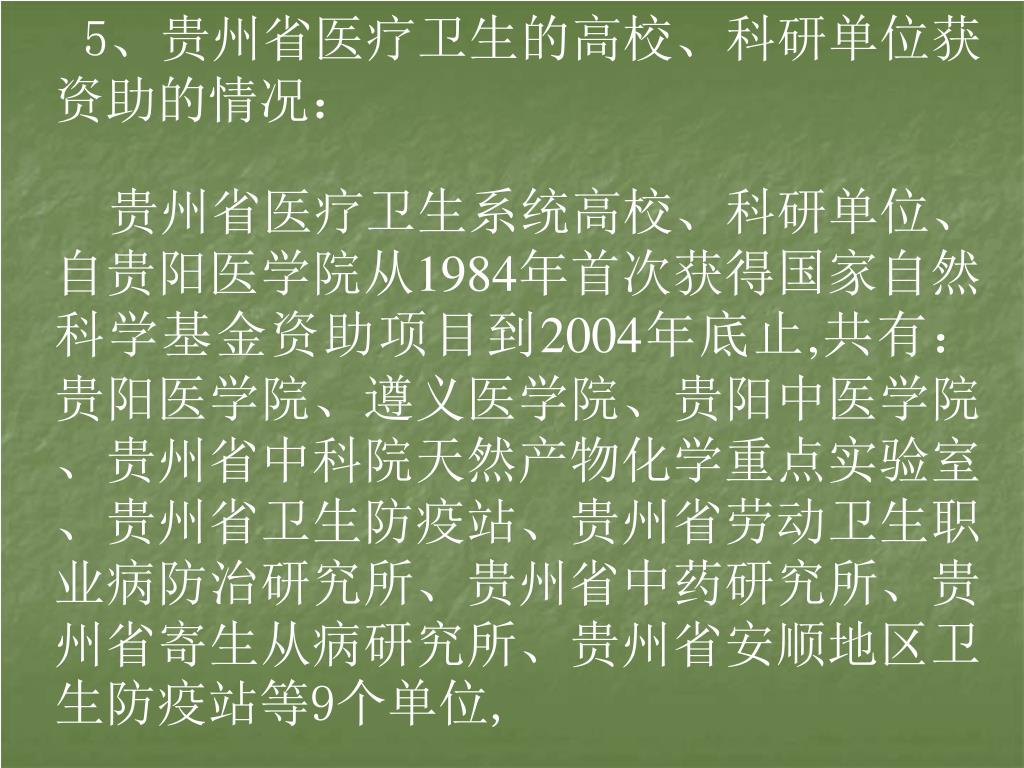 5、贵州省医疗卫生的高校、科研单位获
资助的情况：
贵州省医疗卫生系统高校、科研单位、
自贵阳医学院从1984年首次获得国家自然
科学基金资助项目到2004年底止,共有：
贵阳医学院、遵义医学院、贵阳中医学院
、贵州省中科院天然产物化学重点实验室
、贵州省卫生防疫站、贵州省劳动卫生职
业病防治研究所、贵州省中药研究所、贵
州省寄生从病研究所、贵州省安顺地区卫
生防疫站等9个单位,